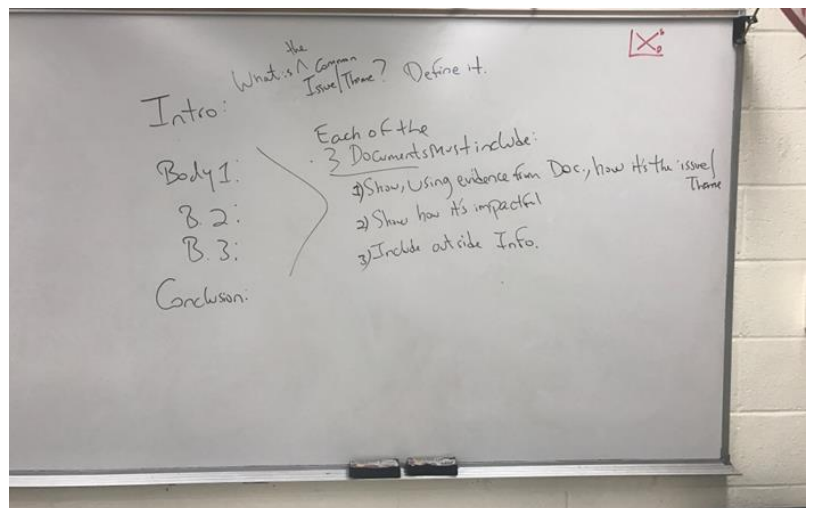 What is ^ the Common
Issue/Theme? Define it.
Intro:
Each of the
3 Documents Must include:
Body 1:
1) Show, Using evidence from Doc., how it's the issue/
Theme
B. 2:
2) Show how it's impactful
B. 3:
3) Include outside Info.
Conclusion: